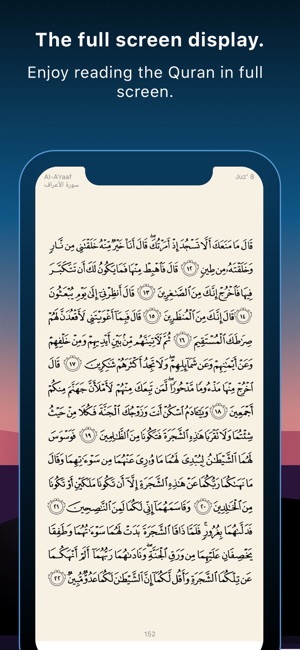 The full screen display.
Enjoy reading the Quran in full
screen.
Al-A'raaf
Juz' 8
سورة الأعراف
قَالَ مَا مَنَعَكَ أَلَّا تَسْجُدَ إِذْ أَمَرْتُكَ ۖ قَالَ أَنَا۠ خَيْرٌ مِّنْهُ خَلَقْتَنِى مِن نَّارٍ
وَخَلَقْتَهُۥ مِن طِينٍ ١٢ قَالَ فَٱهْبِطْ مِنْهَا فَمَا يَكُونُ لَكَ أَن تَتَكَبَّرَ
فِيهَا فَٱخْرُجْ إِنَّكَ مِنَ ٱلصَّٰغِرِينَ ١٣ قَالَ أَنظِرْنِىٓ إِلَىٰ يَوْمِ يُبْعَثُونَ
١٤ قَالَ إِنَّكَ مِنَ ٱلْمُنظَرِينَ ١٥ قَالَ فَبِمَآ أَغْوَيْتَنِى لَأَقْعُدَنَّ لَهُمْ
صِرَٰطَكَ ٱلْمُسْتَقِيمَ ١٦ ثُمَّ لَءَاتِيَنَّهُم مِّنۢ بَيْنِ أَيْدِيهِمْ وَمِنْ خَلْفِهِمْ
وَعَنْ أَيْمَٰنِهِمْ وَعَن شَمَآئِلِهِمْ ۖ وَلَا تَجِدُ أَكْثَرَهُمْ شَٰكِرِينَ ١٧ قَالَ
ٱخْرُجْ مِنْهَا مَذْءُومًا مَّدْحُورًا ۖ لَّمَن تَبِعَكَ مِنْهُمْ لَأَمْلَأَنَّ جَهَنَّمَ مِنكُمْ
أَجْمَعِينَ ١٨ وَيَٰٓـَٔادَمُ ٱسْكُنْ أَنتَ وَزَوْجُكَ ٱلْجَنَّةَ فَكُلَا مِنْ حَيْثُ
شِئْتُمَا وَلَا تَقْرَبَا هَٰذِهِ ٱلشَّجَرَةَ فَتَكُونَا مِنَ ٱلظَّٰلِمِينَ ١٩ فَوَسْوَسَ
لَهُمَا ٱلشَّيْطَٰنُ لِيُبْدِىَ لَهُمَا مَا وُۥرِىَ عَنْهُمَا مِن سَوْءَٰتِهِمَا وَقَالَ
مَا نَهَىٰكُمَا رَبُّكُمَا عَنْ هَٰذِهِ ٱلشَّجَرَةِ إِلَّآ أَن تَكُونَا مَلَكَيْنِ أَوْ تَكُونَا
مِنَ ٱلْخَٰلِدِينَ ٢٠ وَقَاسَمَهُمَآ إِنِّى لَكُمَا لَمِنَ ٱلنَّٰصِحِينَ ٢١
فَدَلَّىٰهُمَا بِغُرُورٍ ۚ فَلَمَّا ذَاقَا ٱلشَّجَرَةَ بَدَتْ لَهُمَا سَوْءَٰتُهُمَا وَطَفِقَا
يَخْصِفَانِ عَلَيْهِمَا مِن وَرَقِ ٱلْجَنَّةِ ۖ وَنَادَىٰهُمَا رَبُّهُمَآ أَلَمْ أَنْهَكُمَا
عَن تِلْكُمَا ٱلشَّجَرَةِ وَأَقُل لَّكُمَآ إِنَّ ٱلشَّيْطَٰنَ لَكُمَا عَدُوٌّ مُّبِينٌ ٢٢
152